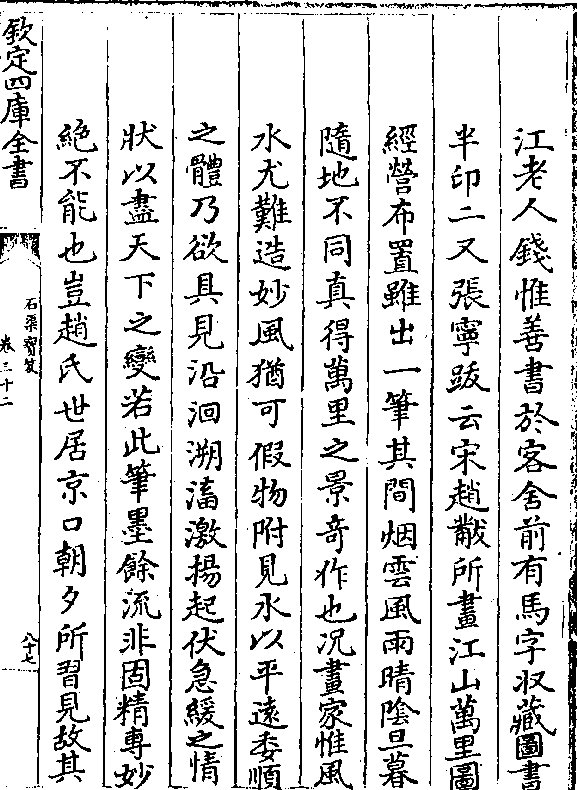 江老人錢惟善書於客舍前有馬字収藏圖書
半印二又張寧跋云宋趙黻所畫江山萬里圖
經營布置雖出一筆其間烟雲風雨晴陰旦暮
隨地不同真得萬里之景竒作也况畫家惟風
水尤難造妙風猶可假物附見水以平逺委順
之體乃欲具見沿洄溯湢激揚起伏急緩之情
狀以盡天下之變若此筆墨餘流非固精專妙
絶不能也豈趙氏世居京口朝夕所習見故其
欽定四庫全書
石渠寳笈
卷三十二
八十七